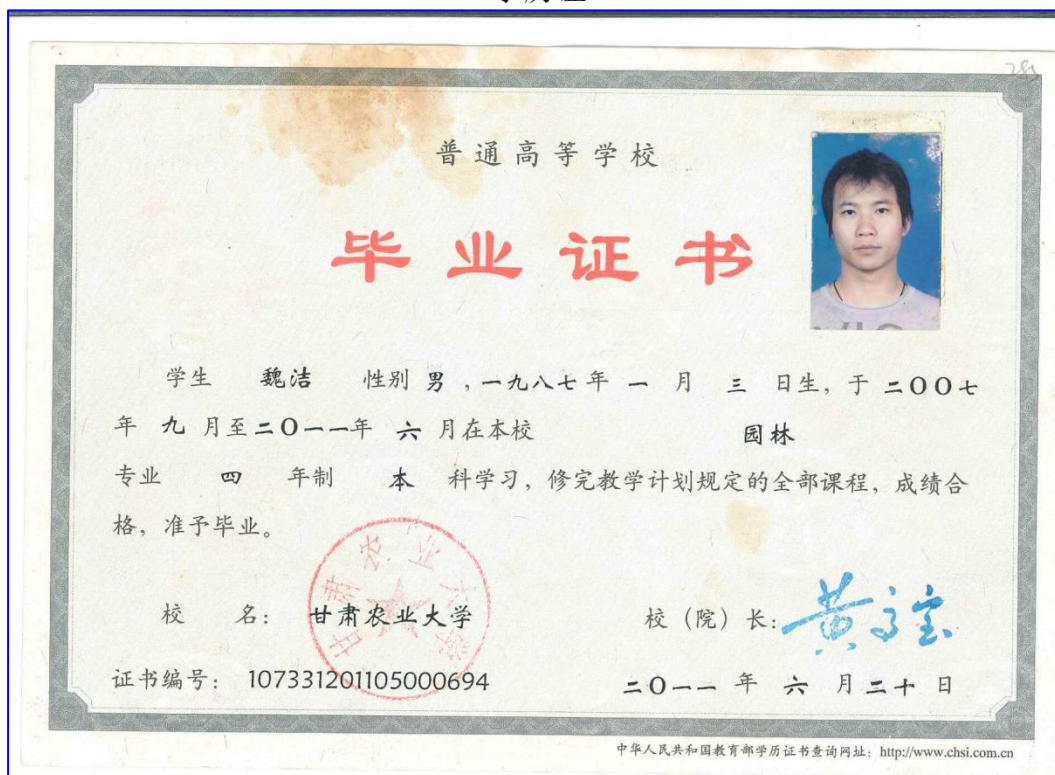 281
普通高等学校
毕业证书
学生 魏洁 性别 男 ，一九八七年 一 月 三 日生，于 二〇〇七
年 九 月至二〇一一年 六 月在本校 园林
专业 四 年制 本 科学习，修完教学计划规定的全部课程，成绩合
格，准予毕业。
甘肃农业大学
校 名： 甘肃农业大学 校（院）长：
证书编号： 107331201105000694 二〇一一 年 六 月二十 日
中华人民共和国教育部学历证书查询网址：http://www.chsi.com.cn